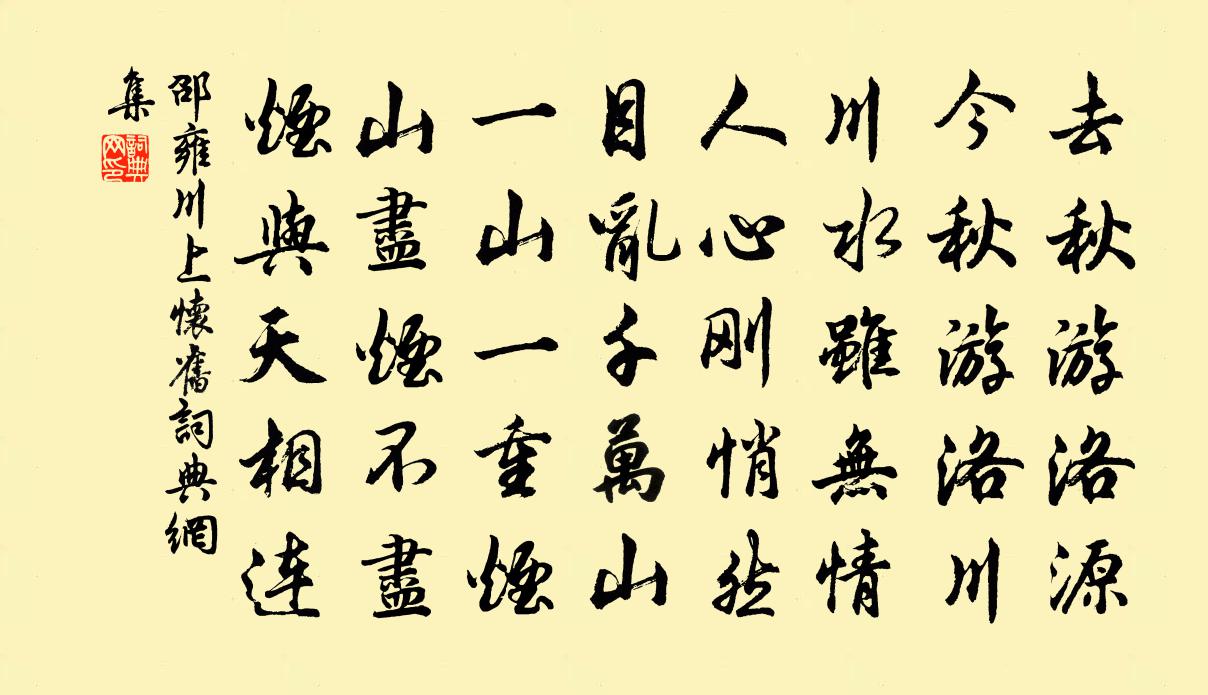 去秋游洛源
今秋游洛川
川水雖無情
人心剛悄然
目亂千萬山
一山一重煙
山盡煙不盡
煙與天相連
邵雍川上懷舊詞典網
集
詞典
网印